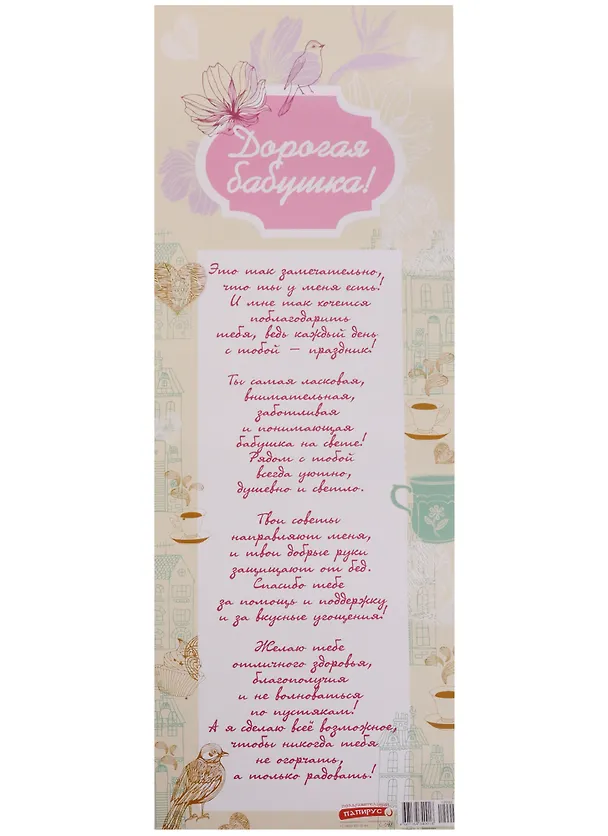 Дорогая
бабушка!
Это так замечательно,
что ты у меня есть!
И мне так хочется
поблагодарить
тебя, ведь каждый день
с тобой — праздник!
Ты самая ласковая,
внимательная,
заботливая
и понимающая
бабушка на свете!
Рядом с тобой
всегда уютно,
душевно и светло.
Твои советы
направляют меня,
и твои добрые руки
защищают от бед.
Спасибо тебе
за помощь и поддержку
и за вкусные угощения!
Желаю тебе
отличного здоровья,
благополучия
и не волноваться
по пустякам!
А я сделаю всё возможное,
чтобы никогда тебя
не огорчать,
а только радовать!
ПАПИРУС